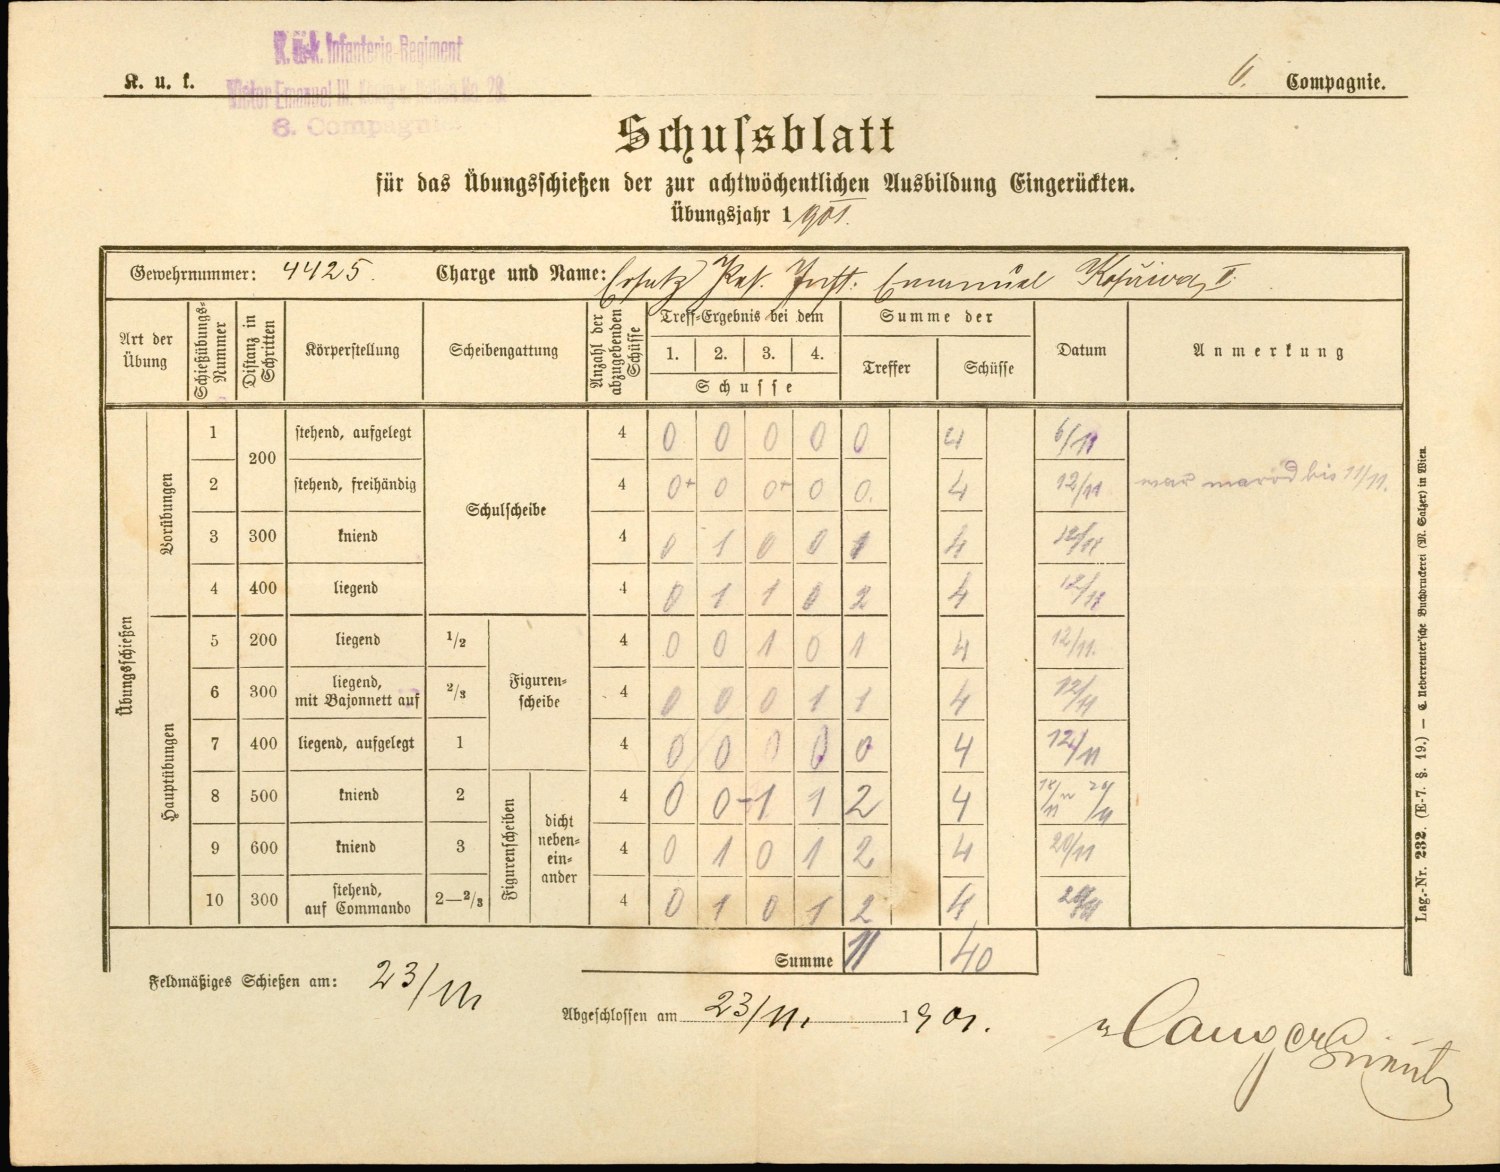 K. u. k. Infanterie-Regiment
K. u. k. Victor Emanuel III. König v. Italien No. 28.
6. Compagnie
6. Compagnie.
Schussblatt
für das Übungsschießen der zur achtwöchentlichen Ausbildung Eingerückten.
Übungsjahr 1901.
Gewehrnummer: 4425. Charge und Name: Ersatz Res. Inft. Emanuel
Art der Übung Schießübungs-Nummer Distanz in Schritten Körperstellung Scheibengattung Anzahl der abzugebenden Schüsse Treff-Ergebnis bei dem 1. 2. 3. 4. Schusse Summe der Treffer Schüsse Datum Anmerkung
Übungsschießen
Vorübungen
Schulscheibe
1 200 stehend, aufgelegt 4 0 0 0 0 0 4 6/11
2 stehend, freihändig 4 0+ 0 0+ 0 0. 4 12/11 war maröd bis 11/11.
3 300 kniend 4 0 1 0 0 1 4 12/11
4 400 liegend 4 0 1 1 0 2 4 12/11
Hauptübungen
Figuren-
scheibe
5 200 liegend 1/2 4 0 0 1 0 1 4 12/11.
6 300 liegend, mit Bajonnett auf 2/3 4 0 0 0 1 1 4 12/11
7 400 liegend, aufgelegt 1 4 0 0 0 0 0 4 12/11
Figurenscheiben
dicht
neben-
ein-
ander
8 500 kniend 2 4 0 0-1 1 2 4
9 600 kniend 3 4 0 1 0 1 2 4 20/11
10 300 stehend, auf Commando 2—2/3 4 0 1 0 1 2 4 20/11
Summe 11 40
Feldmäßiges Schießen am: 23/11
Abgeschlossen am 23/11. 1901.
Lag.-Nr. 232. (E-7. §. 19.) — C. Ueberreuter'sche Buchdruckerei (M. Salzer) in Wien.